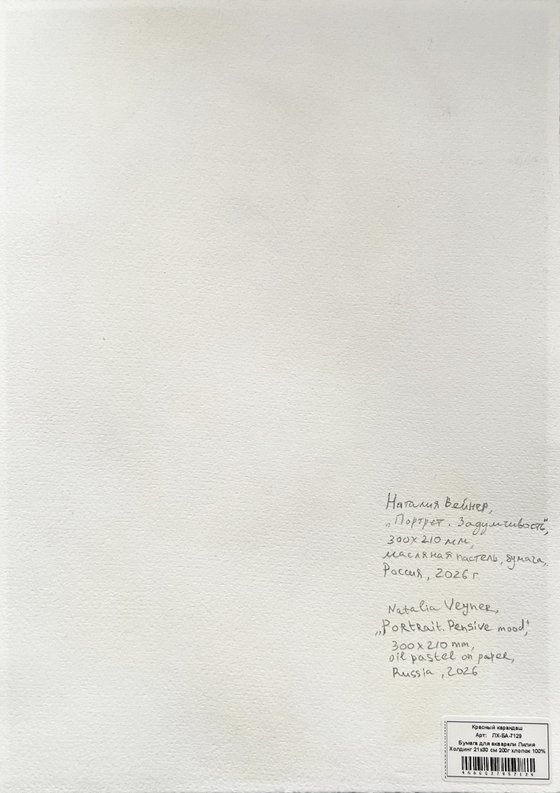 Наталия Вейнер,
„Портрет. Задумчивость",
300х210 мм,
масляная пастель, бумага,
Россия, 2026 г
Natalia Veyner,
„Portrait. Pensive mood",
300x210 mm,
oil pastel on paper,
Russia, 2026
Красный карандаш
Арт: ЛХ-БА-7129
Бумага для акварели Лилия
Холдинг 21х30 см 200г хлопок 100%